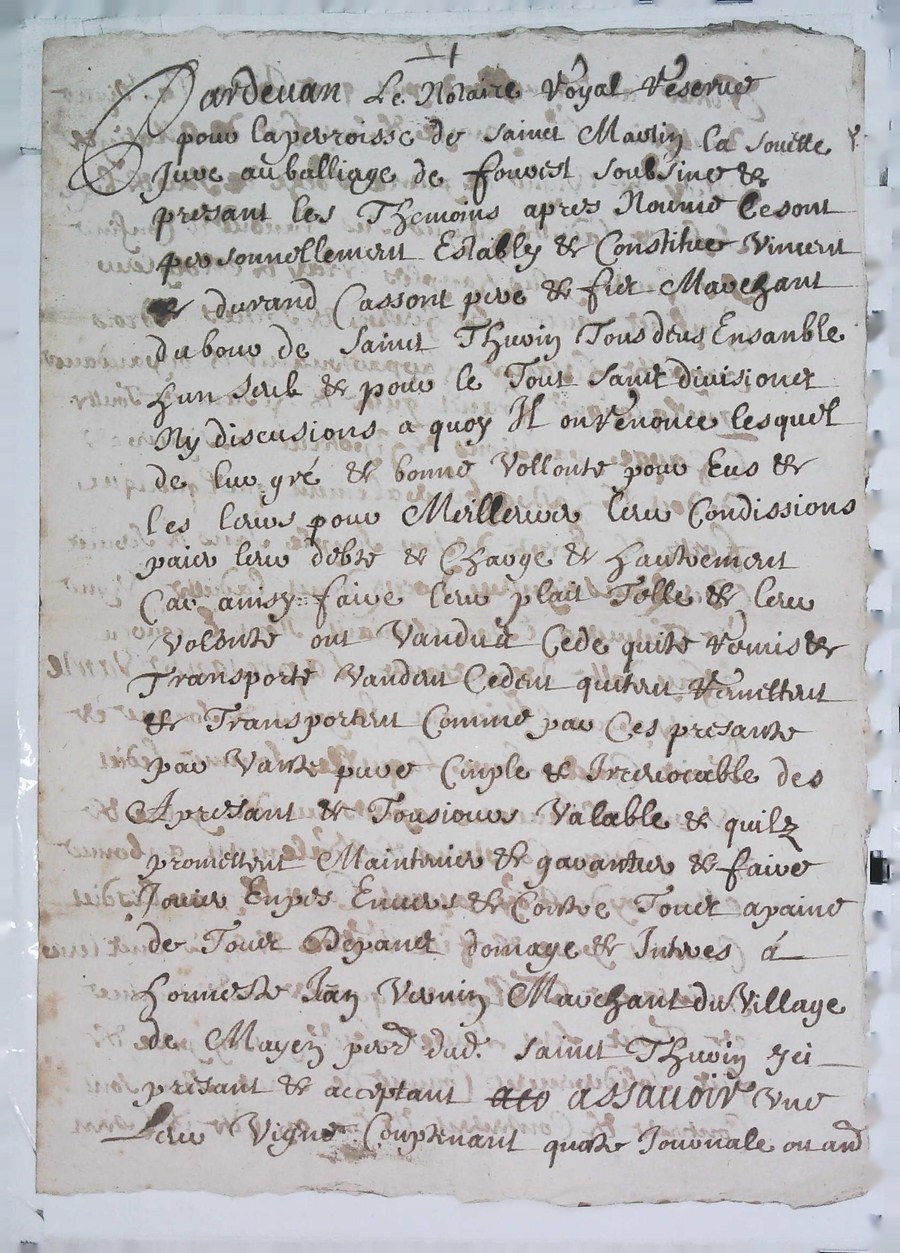 Pardeuan Le Notaire Royal Reservé
pour la parroisse de Sainct Martin la Souette
Jure au balliage de fourest soubsine &
presant les Themoins apres Nomme Ce sont
personnellement Establly & Constitue Vincent
& durand Cassont pere & fiez Marchant
du bour de Sainct Thurin Tous deus Ensanble
hun Seul & pour le Tout sanct divisionet
Ny discusions a quoy Il on renonce lesquel
de lur gré & bonne vollonte pour Eus &
les leurs pour Meillerurer leur Condissions
paier leur debte & Charge & hautrement
Car ainsy faire leur plait Telle & leur
Volonte ont Vandu Cede quite remis &
Transporte Vandent Cedent quitent remettent
& Transportent Comme par Ces presante
par Vante pure Cinple & Irrevocable des
Apresant & Tousiours Valable & quilz
promettent Maintenir & garantir & faire
Jouir Enpes Enuers & Contre Touet apaine
de Touet Depanet domage & Intres á
honneste Jan Vernin Marchant du Village
de Mayen perd dud. Sainct Thurin yci
presant & acceptant assauoir vne
Leur Vigne Contenant quatre Journale ou and